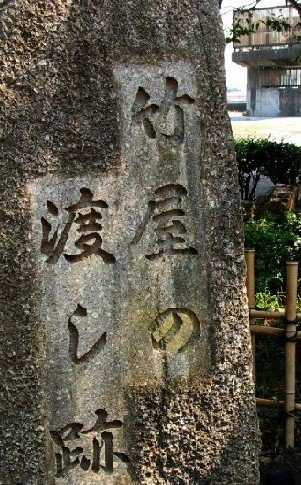 竹屋の
渡し跡